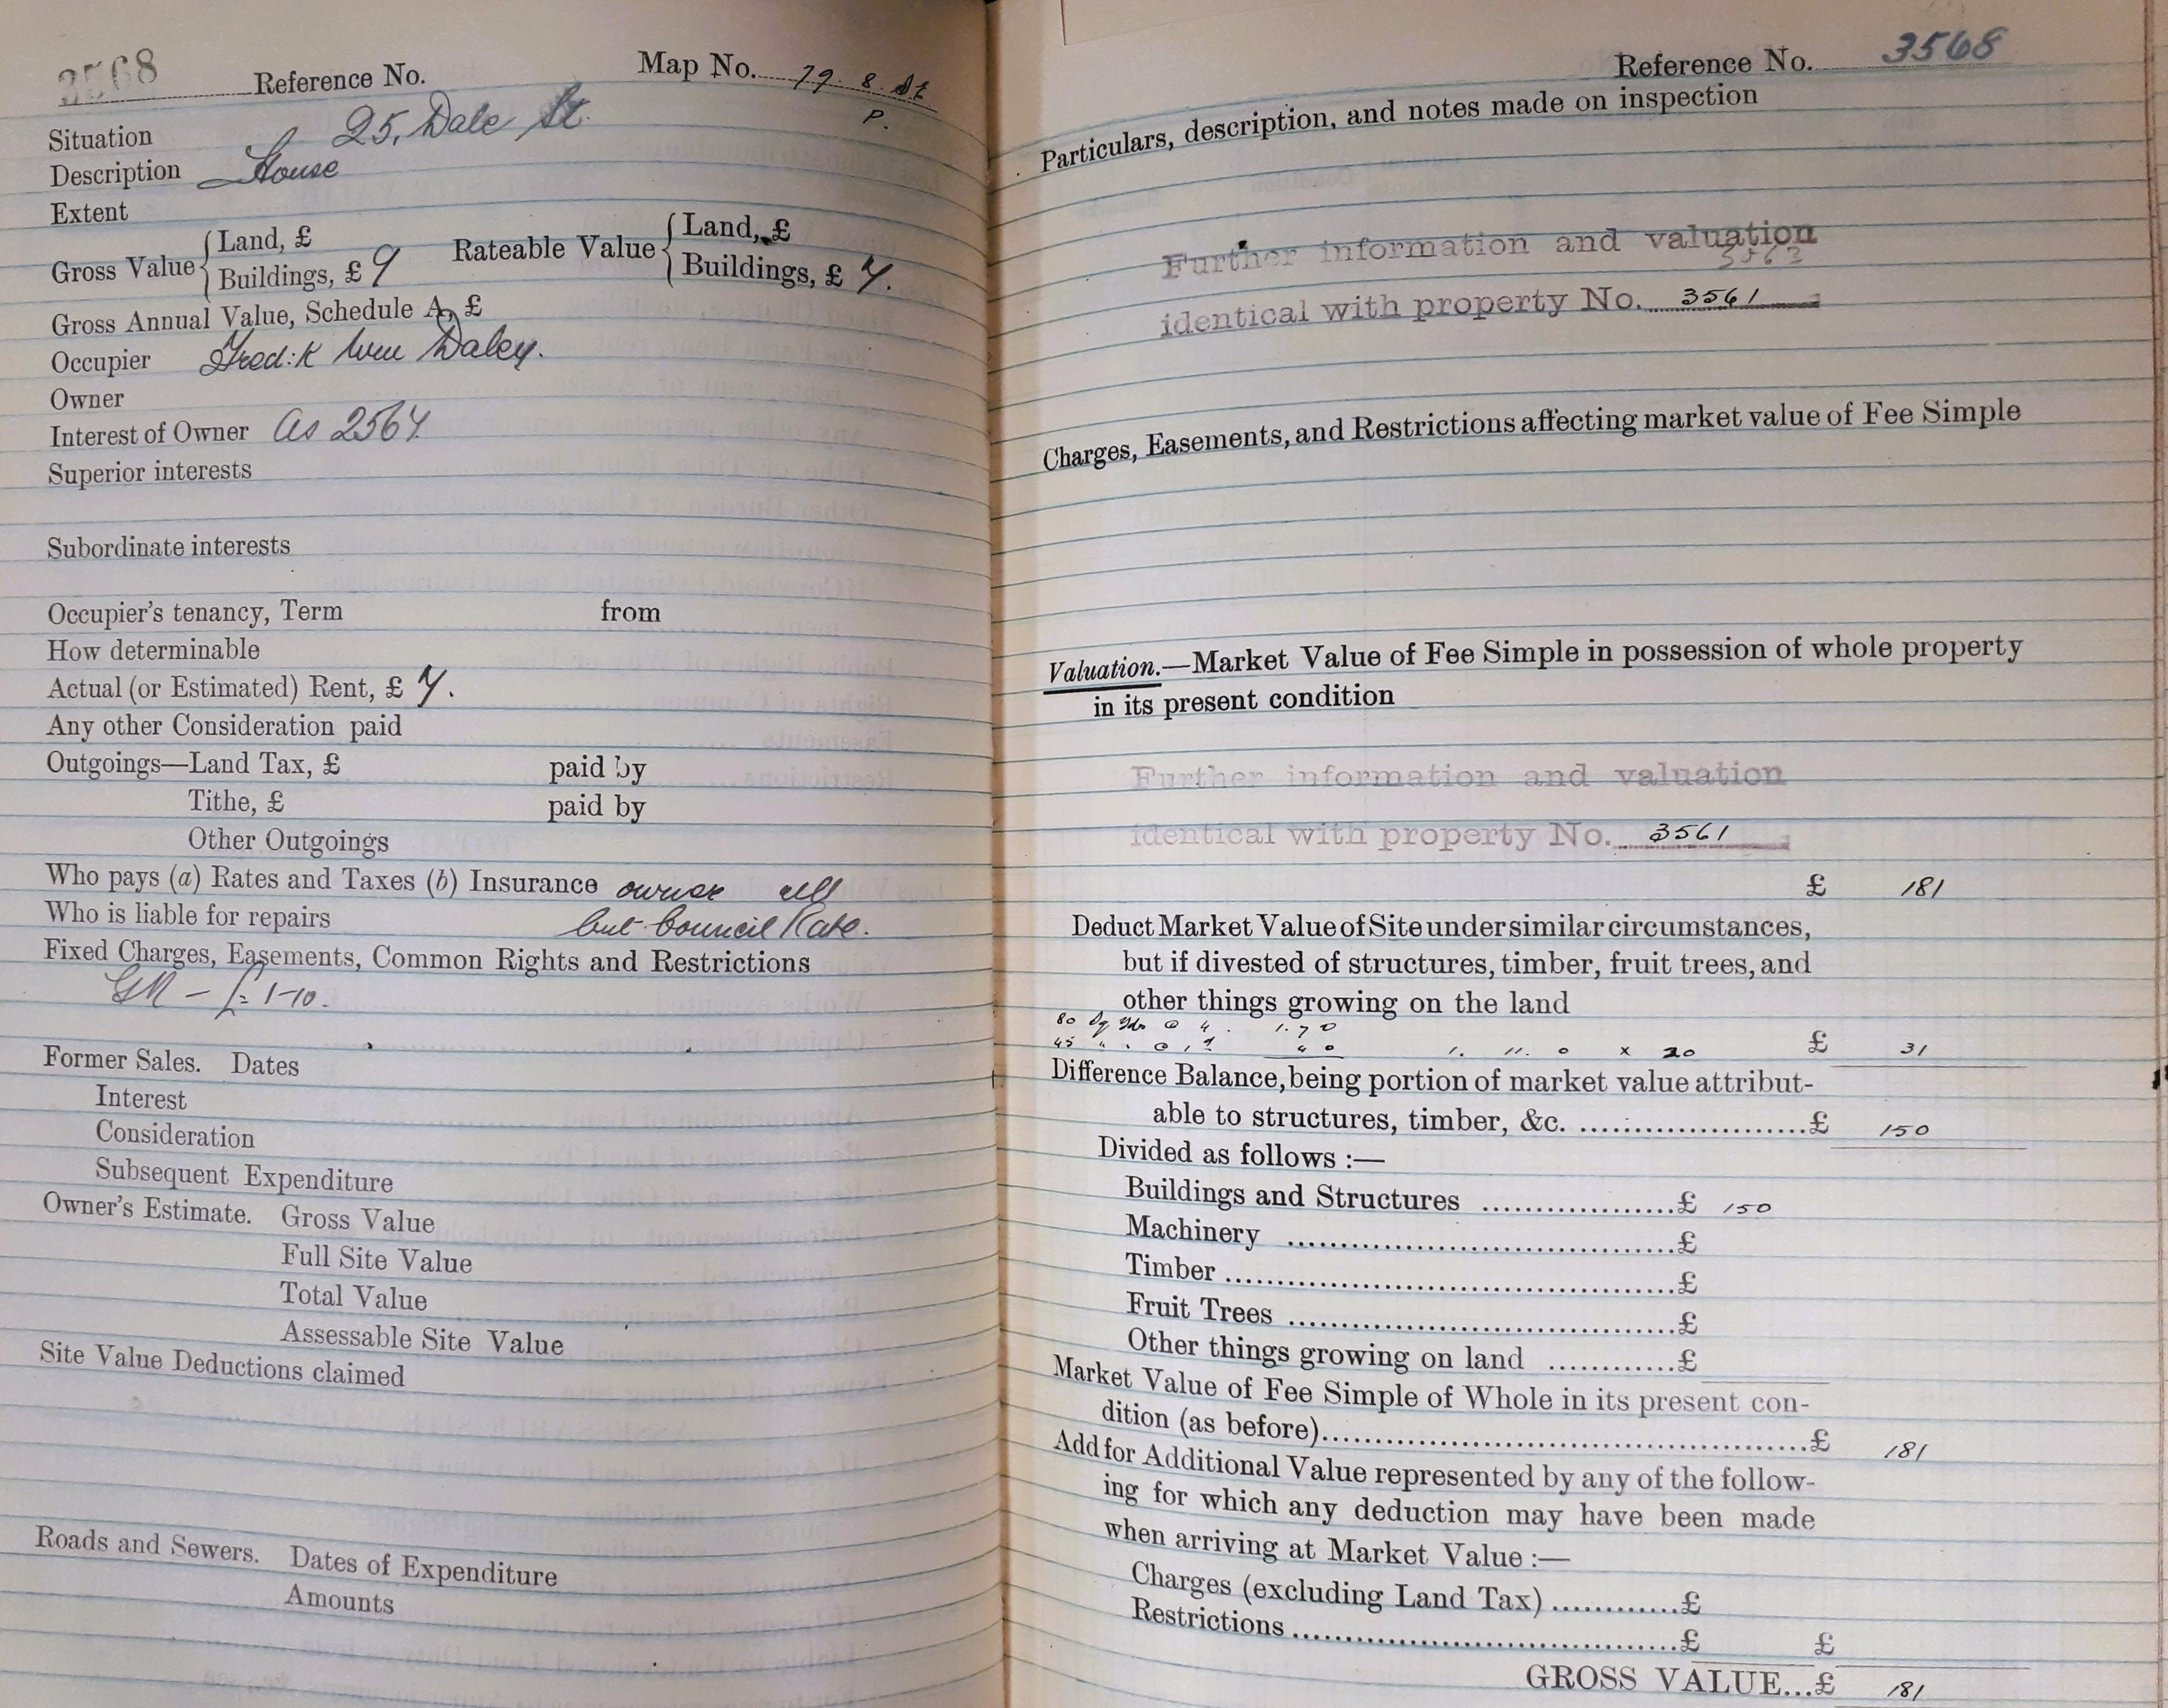 3568 Reference No. Map No. 79. 8. St
P.
Situation 25, Dale St.
Description House
Extent
Gross Value { Land, £
Buildings, £ 9
Rateable Value { Land, £
Buildings, £ 7.
Gross Annual Value, Schedule A, £
Occupier Fred:k Wm Daley.
Owner
Interest of Owner As 2567
Superior interests
Subordinate interests
Occupier's tenancy, Term from
How determinable
Actual (or Estimated) Rent, £ 7.
Any other Consideration paid
Outgoings—Land Tax, £ paid by
Tithe, £ paid by
Other Outgoings
Who pays (a) Rates and Taxes (b) Insurance owner all
Who is liable for repairs but Council Rate.
Fixed Charges, Easements, Common Rights and Restrictions
GR – £1-10.
Former Sales. Dates
Interest
Consideration
Subsequent Expenditure
Owner's Estimate. Gross Value
Full Site Value
Total Value
Assessable Site Value
Site Value Deductions claimed
Roads and Sewers. Dates of Expenditure
Amounts
Reference No. 3568
Particulars, description, and notes made on inspection
Further information and valuation
identical with property No. 3561
Charges, Easements, and Restrictions affecting market value of Fee Simple
Valuation.—Market Value of Fee Simple in possession of whole property
in its present condition
Further information and valuation
identical with property No. 3561
£ 181
Deduct Market Value of Site under similar circumstances,
but if divested of structures, timber, fruit trees, and
other things growing on the land
80 Sq Yds @ 4. 1. 7 0
45 " " @ 1d 4 0 1. 11. 0 x 20 £ 31
Difference Balance, being portion of market value attribut-
able to structures, timber, &c. £ 150
Divided as follows :—
Buildings and Structures £ 150
Machinery £
Timber £
Fruit Trees £
Other things growing on land £
Market Value of Fee Simple of Whole in its present con-
dition (as before) £ 181
Add for Additional Value represented by any of the follow-
ing for which any deduction may have been made
when arriving at Market Value :—
Charges (excluding Land Tax) £
Restrictions £ £
GROSS VALUE...£ 181